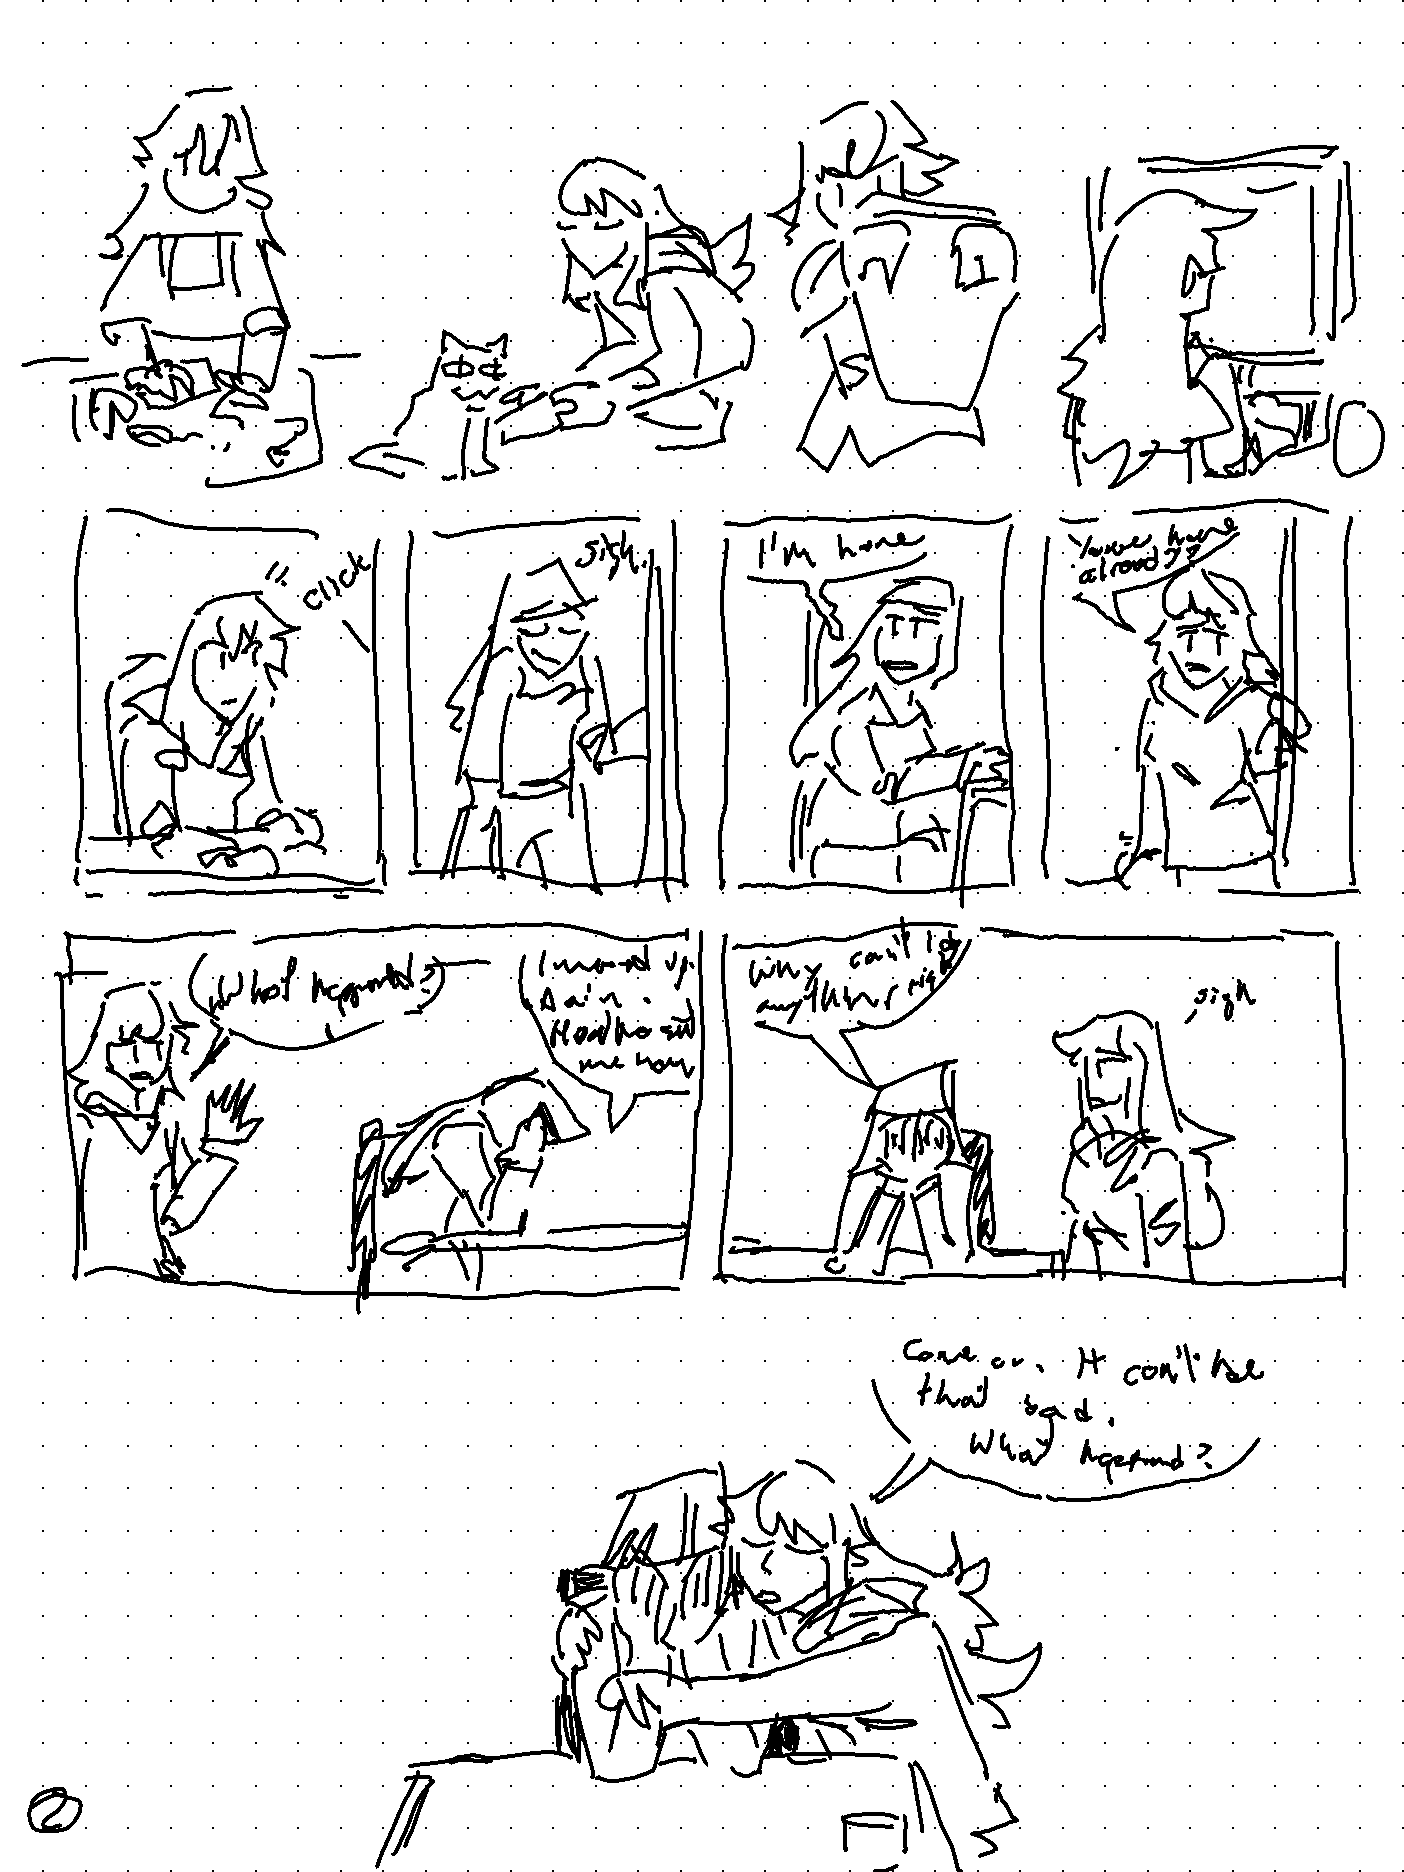 click
sigh.
I'm home
You're home
already??
What happened?
I messed up
again.
sent
me home
Why can't I do
anything right
sigh
Come on. It can't be
that bad.
What happened?
2